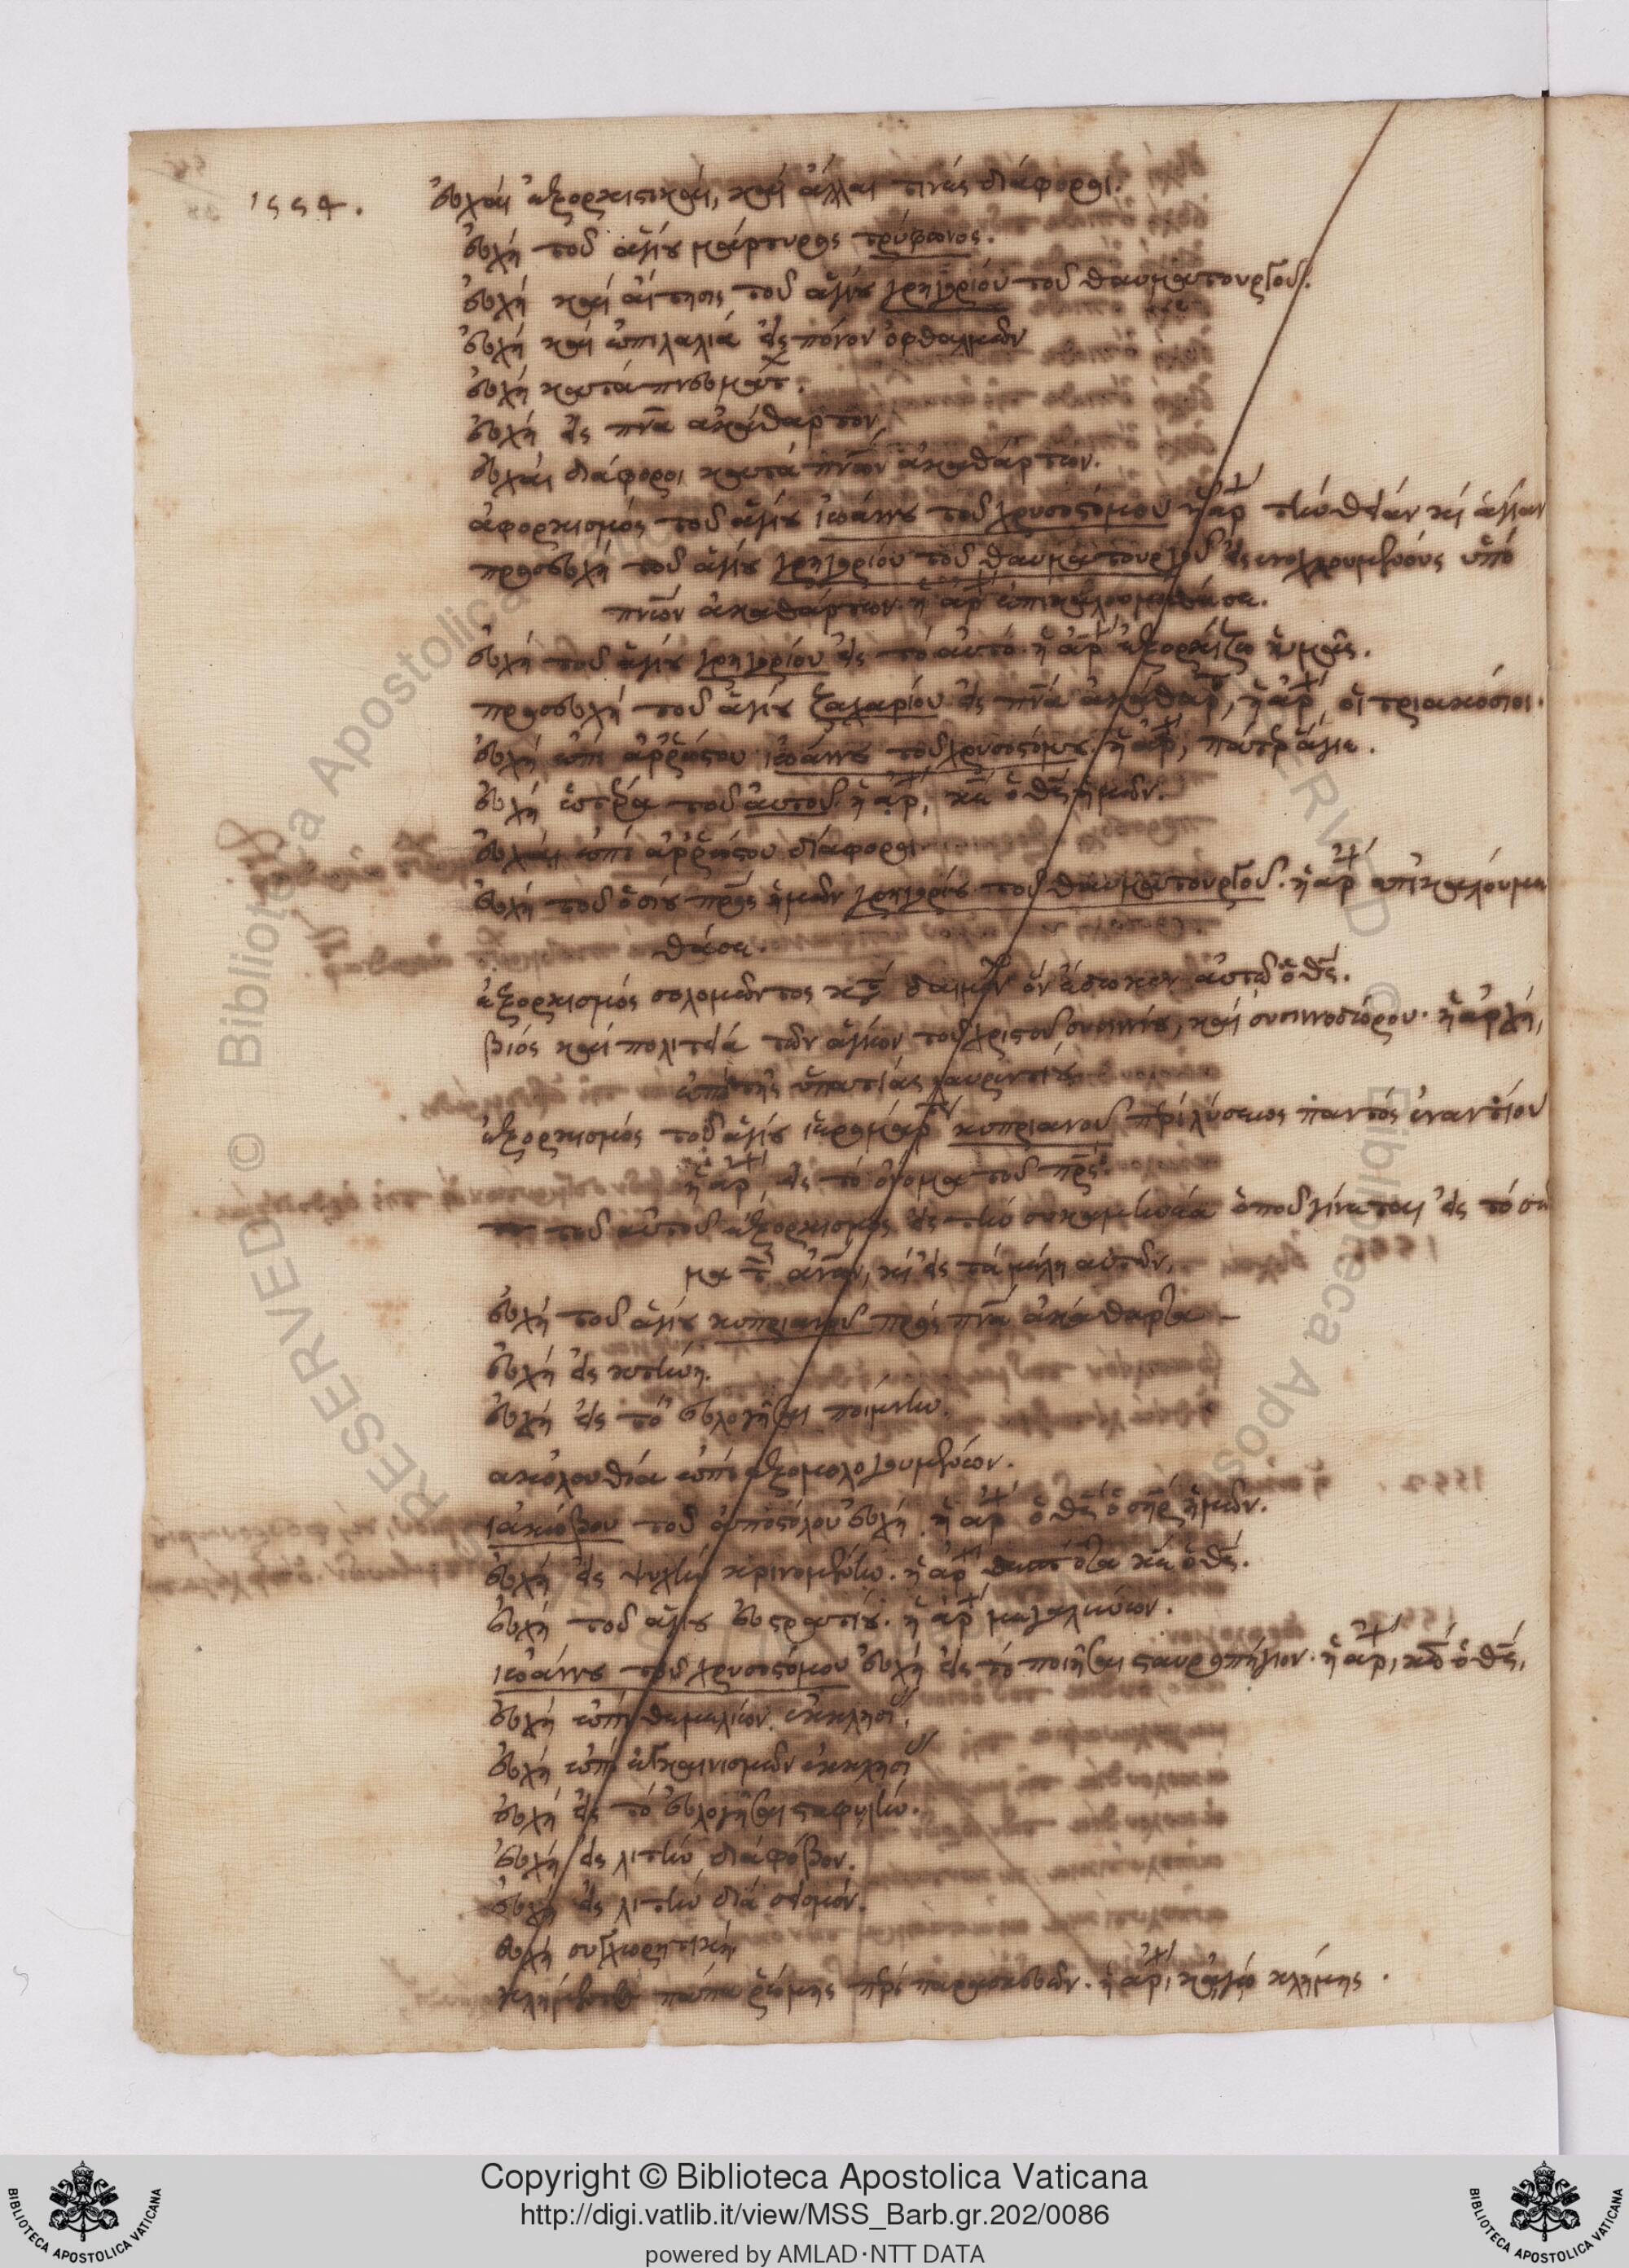 1554. εὐχαὶ ἐξορκιστικαὶ, καὶ ἄλλαι τινὲς διάφοραι.
εὐχὴ τοῦ ἁγίου μάρτυρος τρύφωνος.
εὐχὴ καὶ αἴτησις τοῦ ἁγίου γρηγορίου τοῦ θαυματουργοῦ.
εὐχὴ καὶ ἐπιλαλιὰ εἰς πόνον ὀφθαλμῶν
εὐχὴ κατὰ
εὐχὴ εἰς πνα ἀκάθαρτον
εὐχαὶ διάφοροι κατὰ πνων ἀκαθάρτων.
ἀφορκισμὸς τοῦ ἁγίου ἰωάννου τοῦ χρυσοστόμου ἡ ἀρχ τὴν θείαν κὶ ἁγίαν
προσευχὴ τοῦ ἁγίου γρηγορίου τοῦ θαυματουργοῦ εἰς ἐνοχλουμένους ὑπὸ
πνων ἀκαθάρτων. ἡ ἀρχ ἐπικαλούμεθά σε.
εὐχὴ τοῦ ἁγίου γρηγορίου εἰς τὸ αὐτό. ἡ ἀρχ ἐξορκίζω ὑμᾶς.
προσευχὴ τοῦ ἁγίου εἰς πνα ἀκάθαρτ, ἡ ἀρχ, οἱ τριακόσιοι.
εὐχὴ ἐπὶ ἀρρώστου ἰωάννου τοῦ χρυσοστόμου. ἡ ἀρχ, πάτερ ἅγιε.
εὐχὴ ἑτέρα τοῦ αὐτοῦ. ἡ ἀρχ, κε ὁ θς ἡμῶν.
εὐχαὶ ἐπὶ ἀρρώστου διάφοραι
εὐχὴ τοῦ ὁσίου πρς ἡμῶν γρηγορίου τοῦ θαυματουργοῦ. ἡ ἀρχ ἐπικαλούμε
θά σε.
ἐξορκισμὸς σολομῶντος κατὰ δαιμόν ὃν ἔδωκεν αὐτῶ ὁ θς.
βίος καὶ πολιτεία τῶν ἁγίων τοῦ χριστοῦ συσιννίου, καὶ συσινοδώρου. ἡ ἀρχὴ,
ἐπὶ τῆς ὑπατίας λαυρεντίου
ἐξορκισμὸς τοῦ ἁγίου ἱερομάρτ κυπριανοῦ περὶ λύσεως παντὸς ἐναντίου
ἡ ἀρχ, εἰς τὸ ὄνομα τοῦ πρς.
τοῦ αὐτοῦ ἐξορκισμὸς εἰς τὴν ὁποῦ γίνεται εἰς τὸ σῶ
μα τ ἀνων, κὶ εἰς τὰ μέλη αὐτῶν.
εὐχὴ τοῦ ἁγίου κυπριανοῦ πρὸς πνα ἀκάθαρτα –
εὐχὴ εἰς κτήνη.
εὐχὴ εἰς τὸ εὐλογῆσαι ποίμνην.
ἀκολουθία ἐπὶ ἐξομολογουμένων.
ἰακώβου τοῦ ἀποστόλου εὐχὴ. ἡ ἀρχ ὁ θς ὁ σηρ ἡμῶν.
εὐχὴ εἰς ψυχὴν κρινομένην. ἡ ἀρχ κε ὁ θς.
εὐχὴ τοῦ ἁγίου εὐστρατίου. ἡ ἀρχ μεγαλύνων.
ἰωάννου τοῦ χρυσοστόμου εὐχὴ εἰς τὸ ποιῆσαι σταυροπήγιον. ἡ ἀρχ, κε ὁ θς,
εὐχὴ ἐπὶ θεμελίων ἐκκλησί
εὐχὴ ἐπὶ ἐγκαινισμῶν ἐκκλησί
εὐχὴ εἰς τὸ εὐλογῆσαι σταφυλὴν.
εὐχὴ εἰς λιτὴν διὰ φόβον.
εὐχὴ εἰς λιτὴν διὰ σεισμόν.
εὐχὴ συγχωρητική
κλήμεντος πάπα ῥώμης περὶ παρασκευῶν. ἡ ἀρχ, κἀγὼ κλήμης.
Copyright © Biblioteca Apostolica Vaticana
http://digi.vatlib.it/view/MSS_Barb.gr.202/0086
powered by AMLAD·NTT DATA